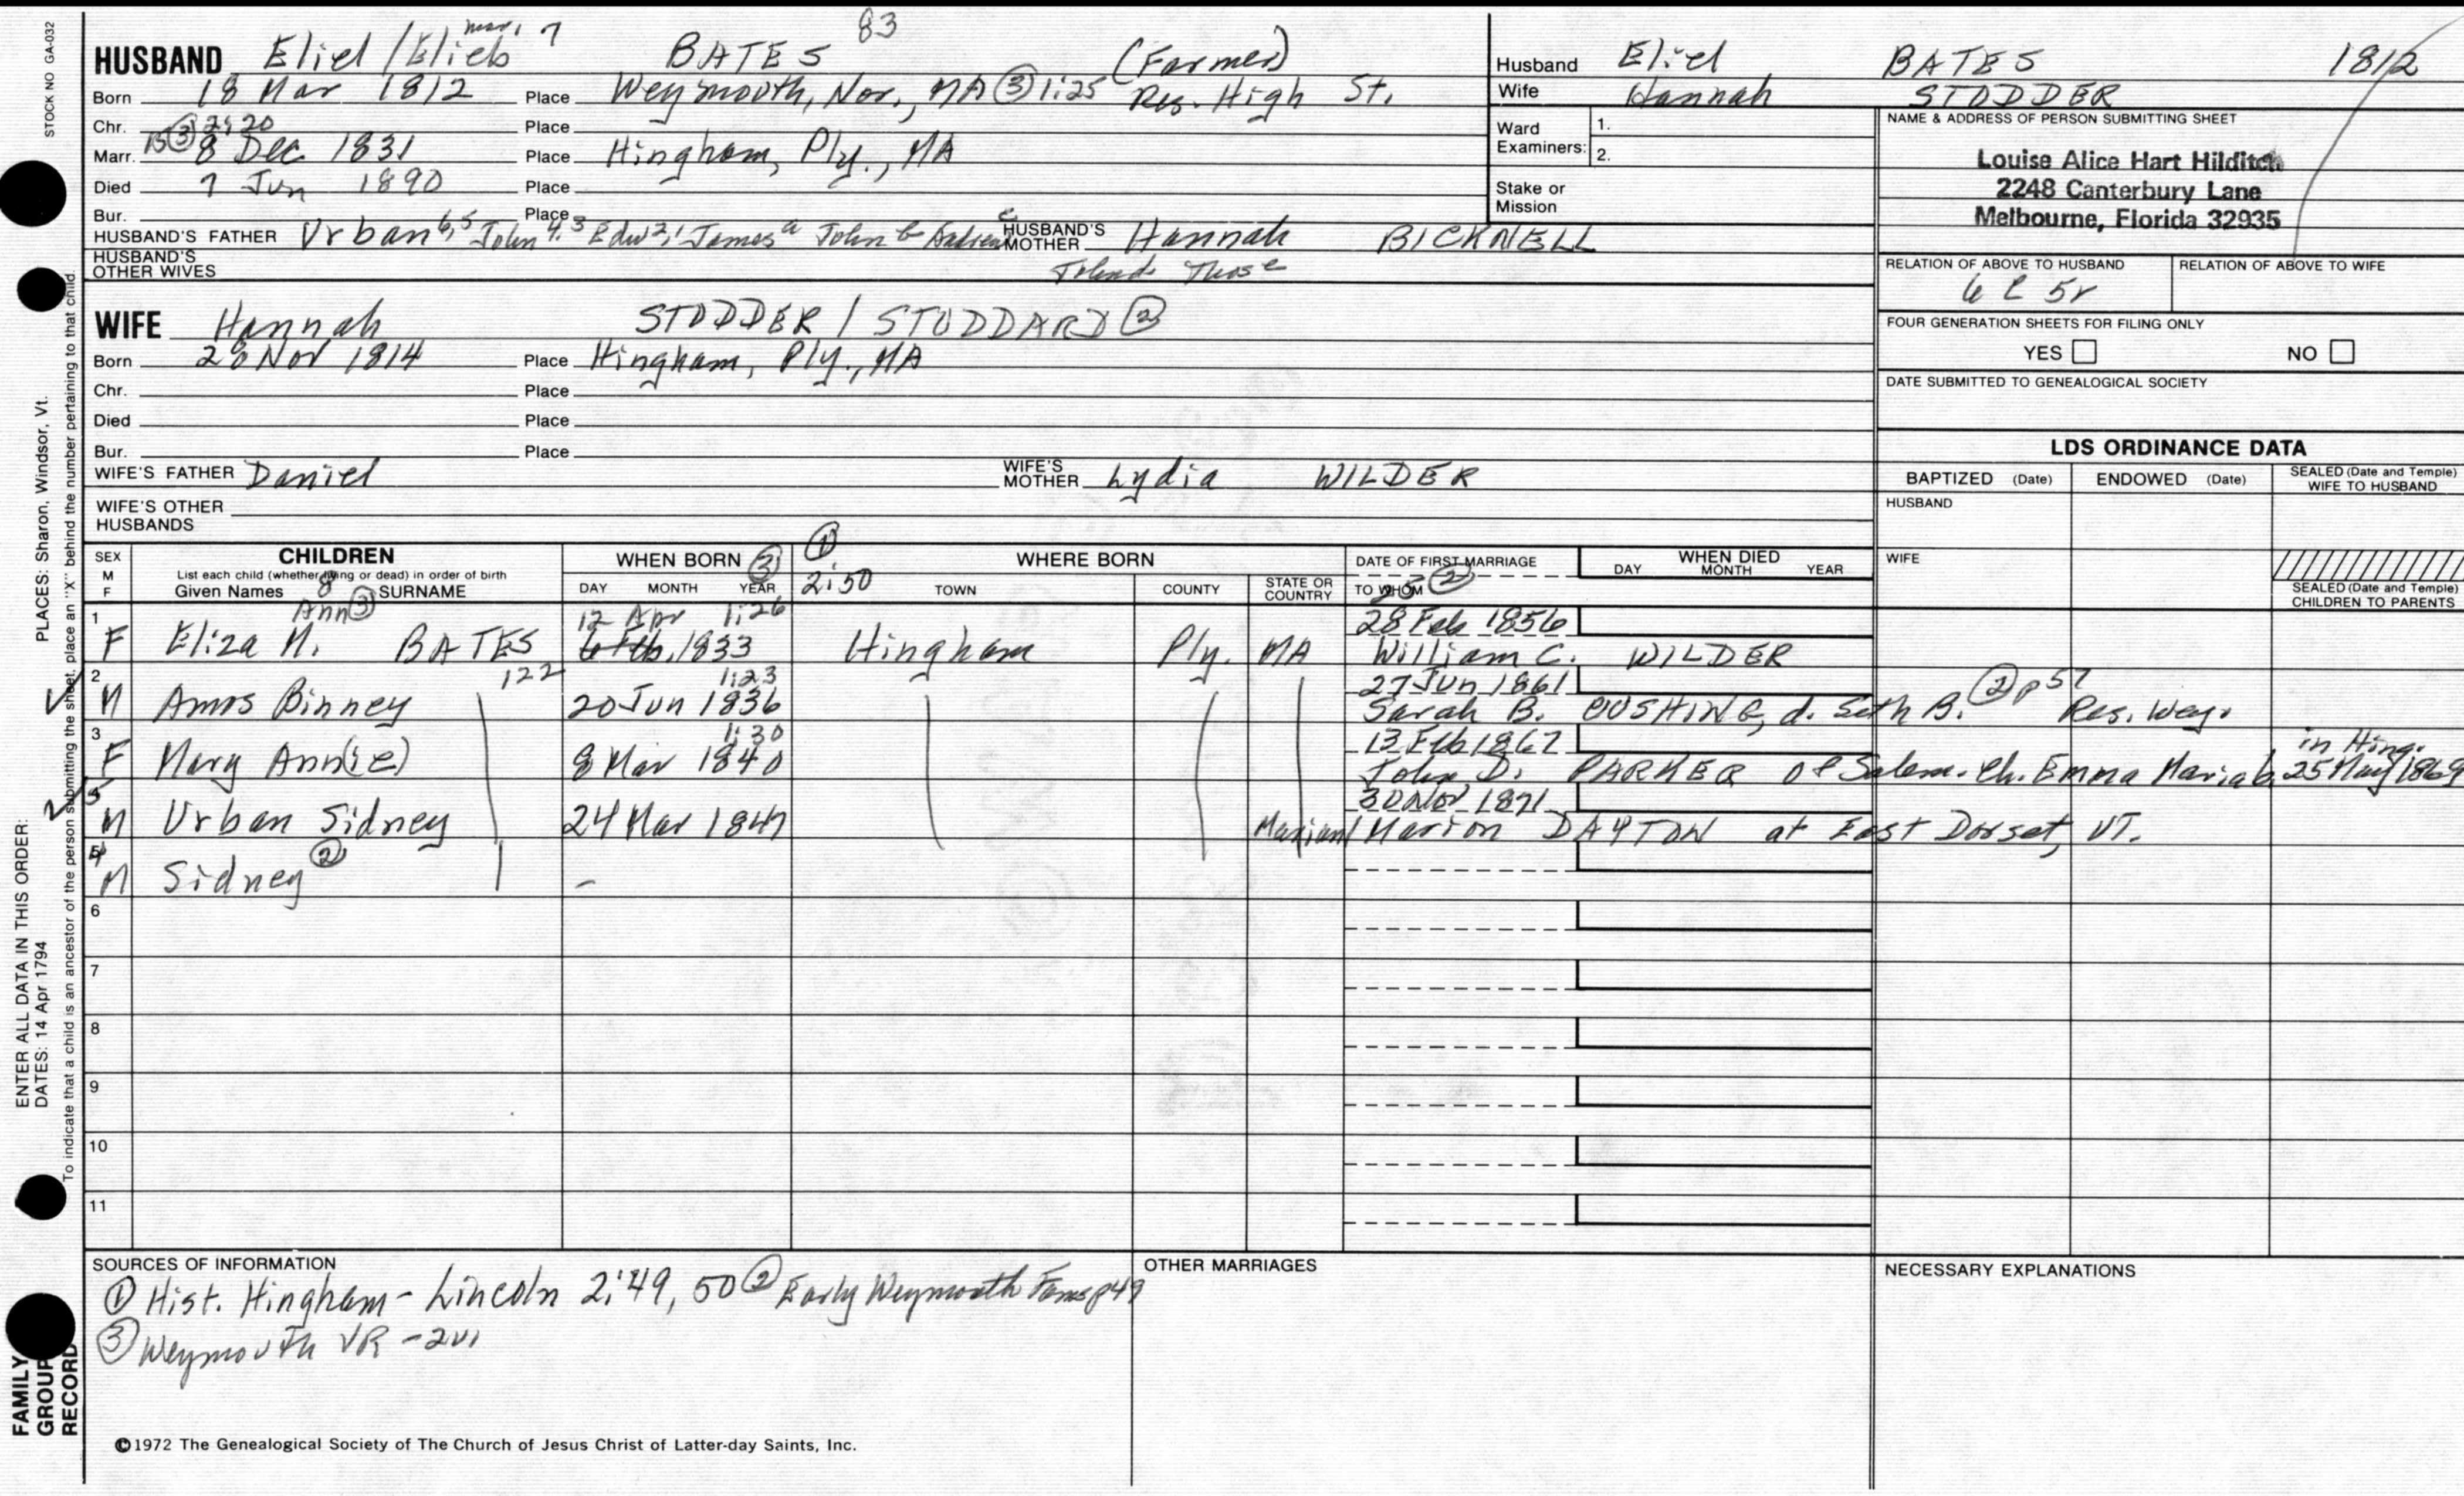 83
HUSBAND Eliel / Elieb 7 BATES (Farmer)
Born 18 Mar 1812 Place Weymouth, Nor., MA ③ 1:25 Res. High St.
Chr. Place
Marr. ③ 2:20 8 Dec 1831 Place Hingham, Ply., MA
Died 7 Jun 1890 Place
Bur. Place
HUSBAND'S FATHER Urban 6,5 John 4,3 Edw 2,1 James a John b HUSBAND'S MOTHER Hannah BICKNELL
HUSBAND'S OTHER WIVES
WIFE Hannah STODDER / STODDARD ②
Born 28 Nov 1814 Place Hingham, Ply., MA
Chr. Place
Died Place
Bur. Place
WIFE'S FATHER Daniel WIFE'S MOTHER Lydia WILDER
WIFE'S OTHER HUSBANDS
Husband Eliel BATES 1812
Wife Hannah STODDER
Ward Examiners: 1.
2.
Stake or Mission
NAME & ADDRESS OF PERSON SUBMITTING SHEET
Louise Alice Hart Hilditch
2248 Canterbury Lane
Melbourne, Florida 32935
RELATION OF ABOVE TO HUSBAND RELATION OF ABOVE TO WIFE
6 C 5r
FOUR GENERATION SHEETS FOR FILING ONLY
YES NO
DATE SUBMITTED TO GENEALOGICAL SOCIETY
LDS ORDINANCE DATA
BAPTIZED (Date) ENDOWED (Date) SEALED (Date and Temple) WIFE TO HUSBAND
HUSBAND
WIFE
SEALED (Date and Temple) CHILDREN TO PARENTS
SEX M F
CHILDREN
List each child (whether living or dead) in order of birth
Given Names 8 SURNAME
WHEN BORN ③
DAY MONTH YEAR
① 2:50
WHERE BORN
TOWN COUNTY STATE OR COUNTRY
DATE OF FIRST MARRIAGE
TO WHOM ②
WHEN DIED
DAY MONTH YEAR
Ann ③ 12 Apr 1:26 28 Feb 1856
1 F Eliza N. BATES 6 Feb, 1833 Hingham Ply. MA William C. WILDER
122 1:23 27 Jun 1861
2 M Amos Binney 20 Jun 1836 Sarah B. CUSHING, d. Seth B. ② p 57 Res. Wey.
1:30 13 Feb 1867
3 F Mary Ann(ie) 8 Mar 1840 John D. PARKER of Salem. Ch. Emma Maria b. 25 May 1869 in Hing.
30 Nov 1871
M Urban Sidney 24 Mar 1847 Marian / Marion DAYTON at East Dorset, VT.
M Sidney ② –
6
7
8
9
10
11
SOURCES OF INFORMATION
① Hist. Hingham - Lincoln 2:49, 50 ② Early Weymouth Fams p49
③ Weymouth VR - 2vl
OTHER MARRIAGES
NECESSARY EXPLANATIONS
©1972 The Genealogical Society of The Church of Jesus Christ of Latter-day Saints, Inc.
STOCK NO GA-032
PLACES: Sharon, Windsor, Vt.
To indicate that a child is an ancestor of the person submitting the sheet, place an "X" behind the number pertaining to that child.
ENTER ALL DATA IN THIS ORDER:
DATES: 14 Apr 1794
FAMILY GROUP RECORD